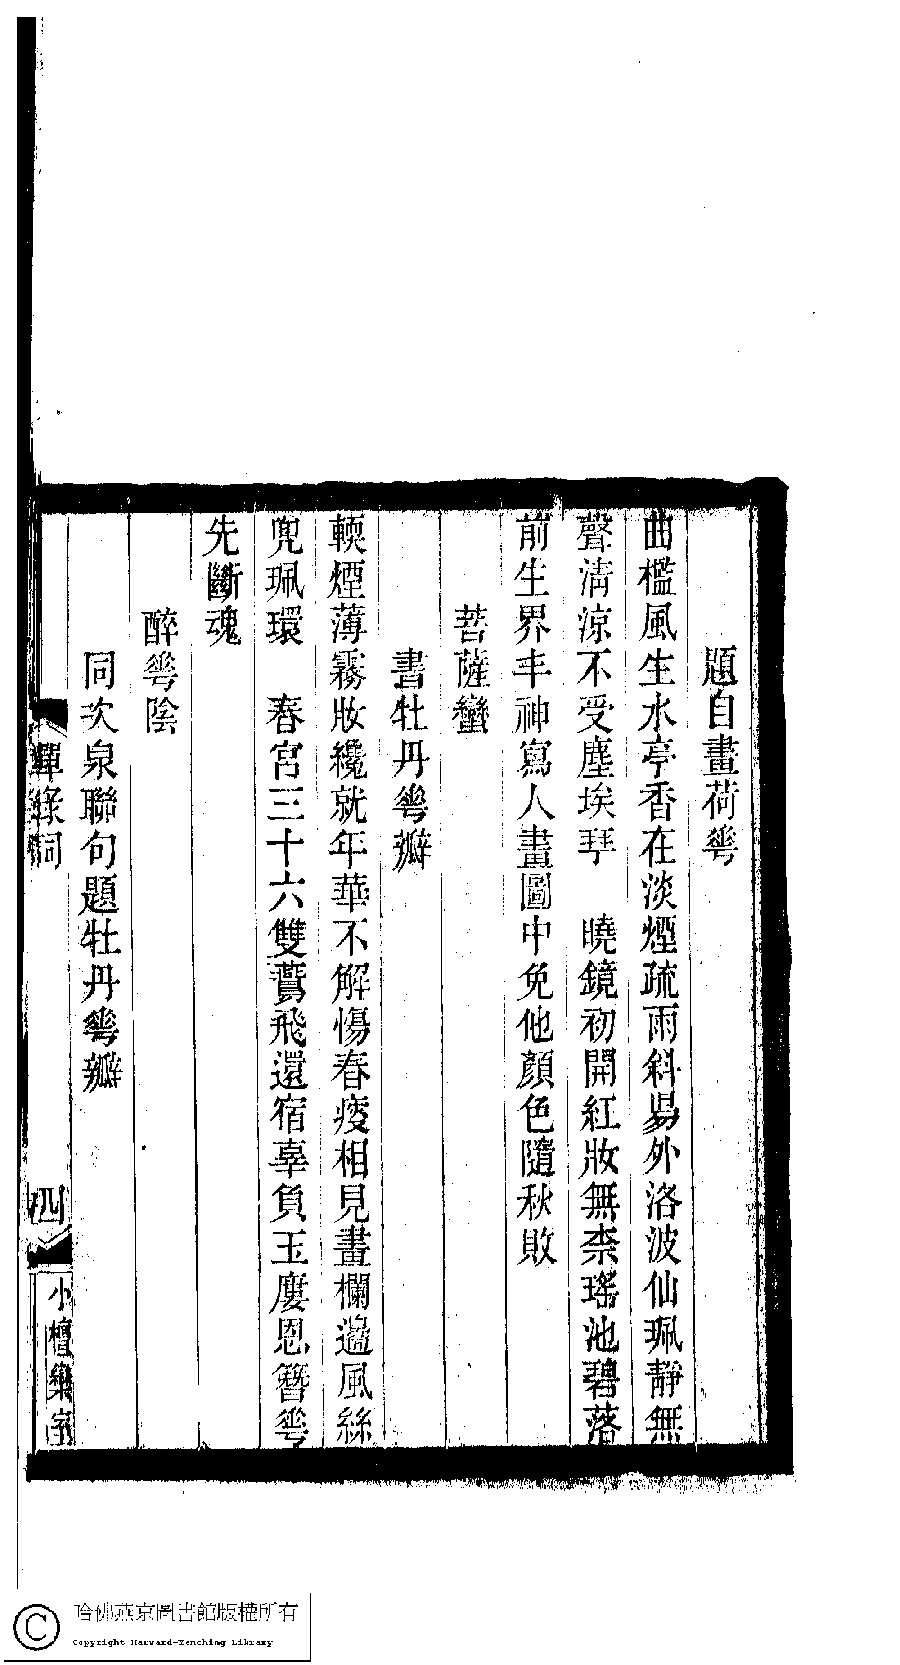 題自畫荷蕐
曲檻風生水亭香在淡煙疏雨斜昜外洛波仙珮靜無
聲淸涼不受塵埃琴　曉鏡初開紅妝無柰瑤池碧落
前生界丰神寫人畫圖中免他顏色隨秋敗
菩薩蠻
書牡丹蕐瓣
輭煙薄霧妝纔就年華不解傷春瘦相見畫欄邊風絲
兜珮環　春宮三十六雙鷰飛還宿辜負玉屢恩簪蕐
先斷魂
醉蕐陰
同次泉聯句題牡丹蕐瓣
詞
四
小檀欒室
哈佛燕京圖書館版權所有
Copyright Harvard-Yenching Library